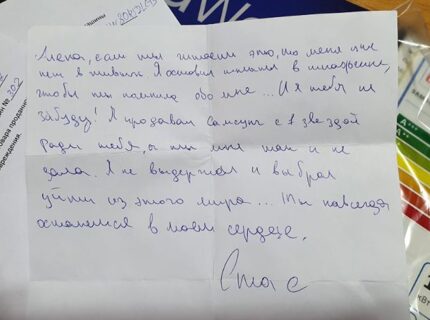 Лена, если ты читаешь это, то меня уже
нет в живых. Я оставил и шмашеше,
чтобы ты помнила обо мне... И я тебя не
забуду! Я продавал самсунг с 1 звездой
ради тебя, а ты мне так и не
дала. Я не выдержал и выбрал
уйти из этого мира... Ты навсегда
останешься в моем сердце.
Стас
№ 302
овара продавц
реждения.
кВт